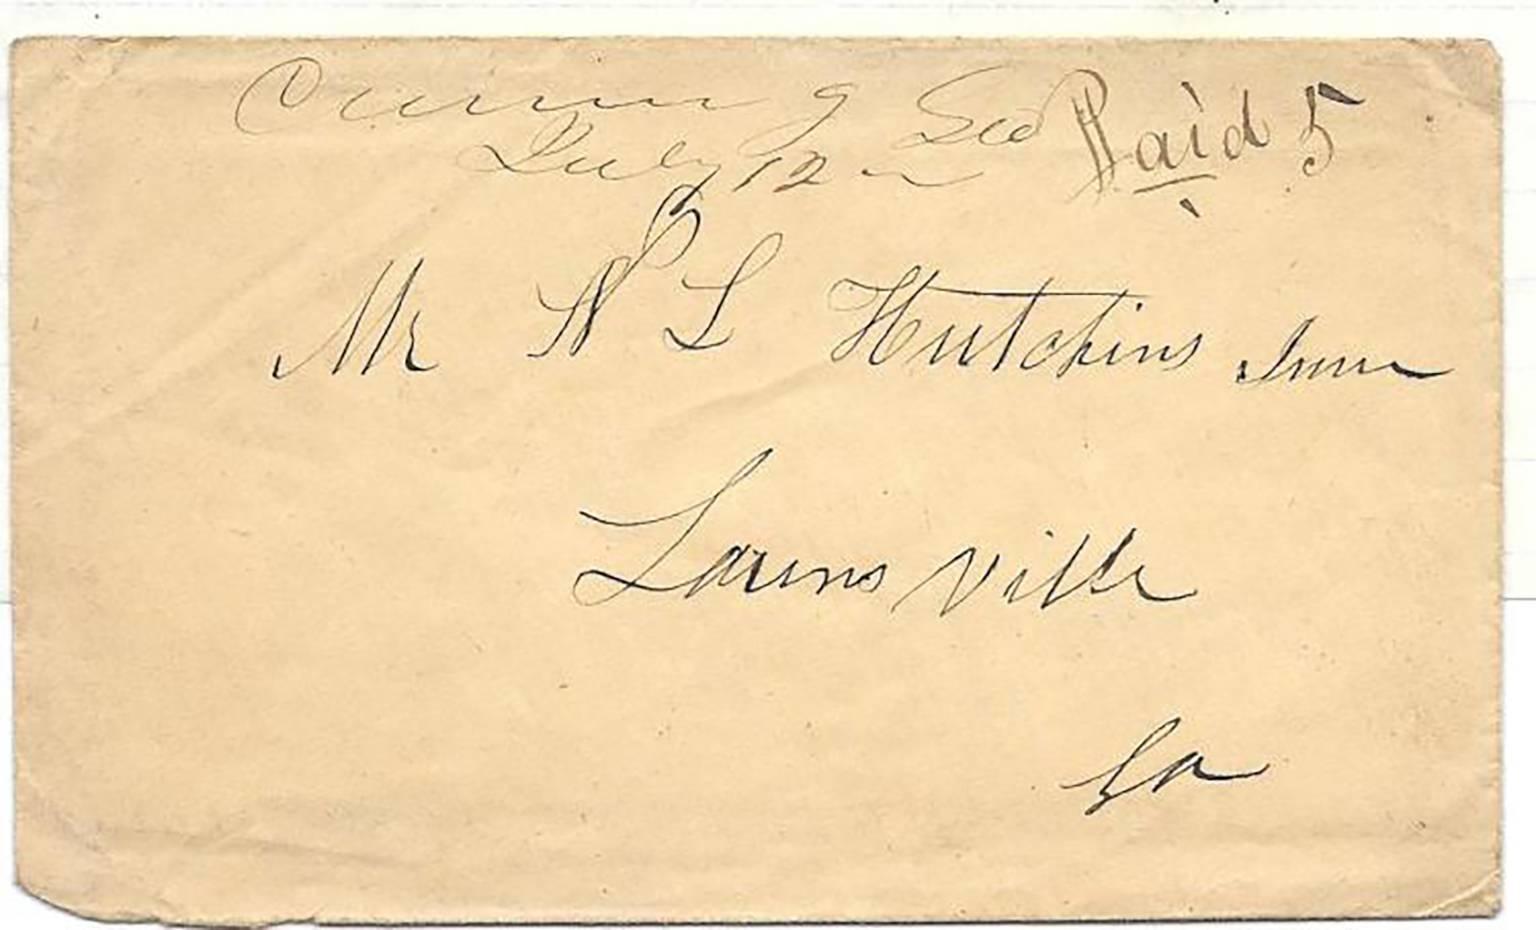 Cumming Geo Paid 5
July 12
Mr N L Hutchins Junr
Lawrnsville
Ga